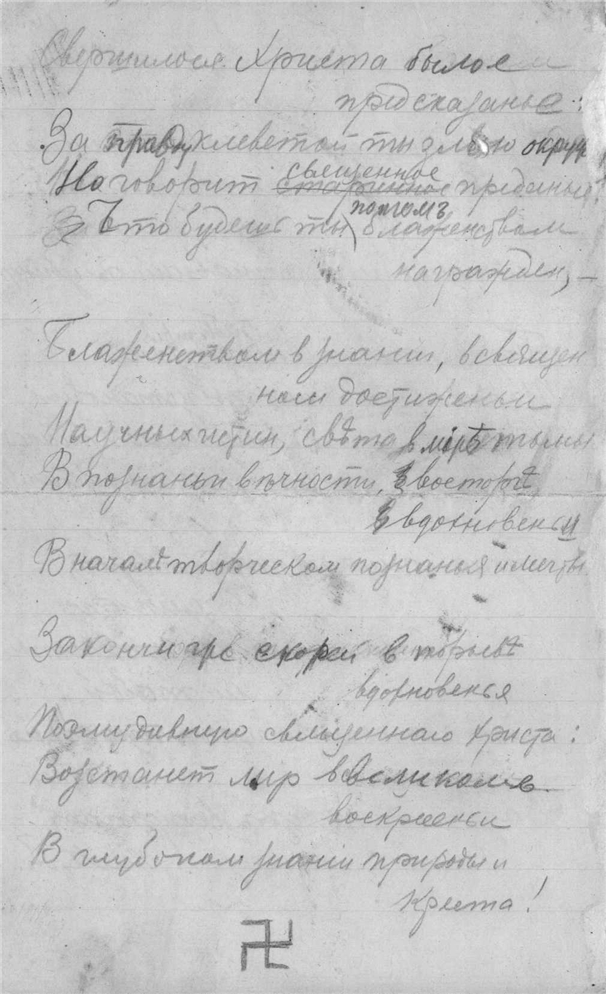 Свершилося Христа былое
предсказанье:
За правду клеветой ты злою окруж
Но говорит священное
старинное преданье
потомъ
Что будешь ты блаженством
награжден,—
Блаженством в знании, в священ
ном достиженьи
Научных истин, свѣта в морѣ тьмы
В познаньи вѣчности, в восторгѣ
в вдохновеньи
В началѣ творческом познанья и мечты
Закончи скорей в порывѣ
вдохновенья
Поэму дивную священнаго Христа:
Возстанет мир в великом
воскресеньи
В глубоком знании природы и
Креста!